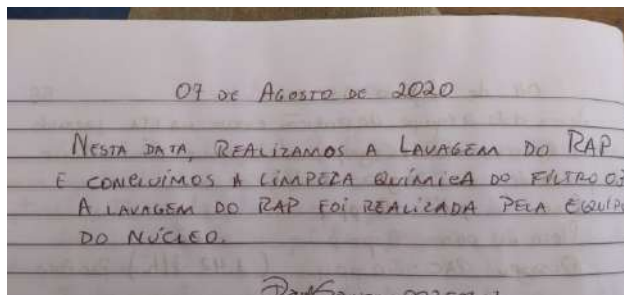 07 DE AGOSTO DE 2020
NESTA DATA, REALIZAMOS A LAVAGEM DO RAP
E CONCLUÍMOS A LIMPEZA QUÍMICA DO FILTRO
A LAVAGEM DO RAP FOI REALIZADA PELA EQUIPE
DO NÚCLEO.